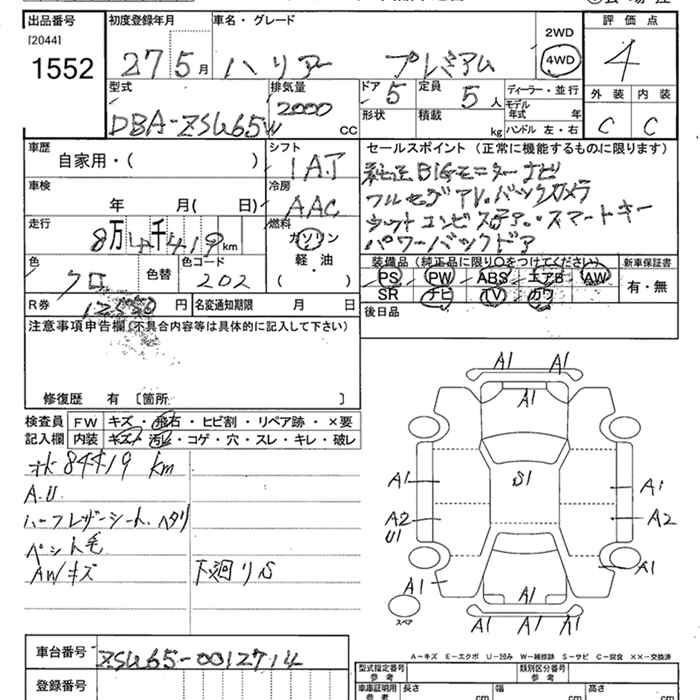 出品番号
[2044]
1552
初度登録年月
27 5 月
車名・グレード
ハリアー プレミアム
2WD
4WD
評価点
4
外装 内装
C C
型式
DBA-ZSU65W
排気量
2000
CC
ドア 5
形状
定員 5 人
積載 kg
ディーラー・並行
モデル年式 年
ハンドル 左・右
車歴
自家用・( )
車検
年 月( 日)
走行
8万 4千 419 km
色
クロ
色替
色コード
202
シフト
IAT
冷房
AAC
燃料
ガソリン
軽・油
( )
セールスポイント(正常に機能するものに限ります)
純正BIGモニターナビ
フルセグTV.バックカメラ
シートコンビステア.スマートキー
パワーバックドア
装備品(純正品に限り〇をつけてください)
PS PW ABS エアB AW
SR ナビ TV カワ
新車保証書
有・無
後日品
R券
円
名変通知期限 月 日
注意事項申告欄(不具合内容等は具体的に記入して下さい)
修復歴 有 〔箇所 〕
検査員
記入欄
FW キズ・飛石・ヒビ割・リペア跡・×要
内装 キズ・汚レ・コゲ・穴・スレ・キレ・破レ
84419 km
A.U
ハーフレザーシート.ヘタリ
ペット毛
AWキズ
下廻りS
A1 A1
A1
S1
A1
A1
A2
U1
A2
A1
A1
A1
A1 A1 A1
スペア
A-キズ E-エクボ U-凹み W-補修跡 S-サビ C-腐食 ××-交換済
車台番号
ZSU65-0012714
登録番号
型式指定番号
参考
類別区分番号
参考
車庫証明用
参考
長さ cm
幅 cm
高さ cm